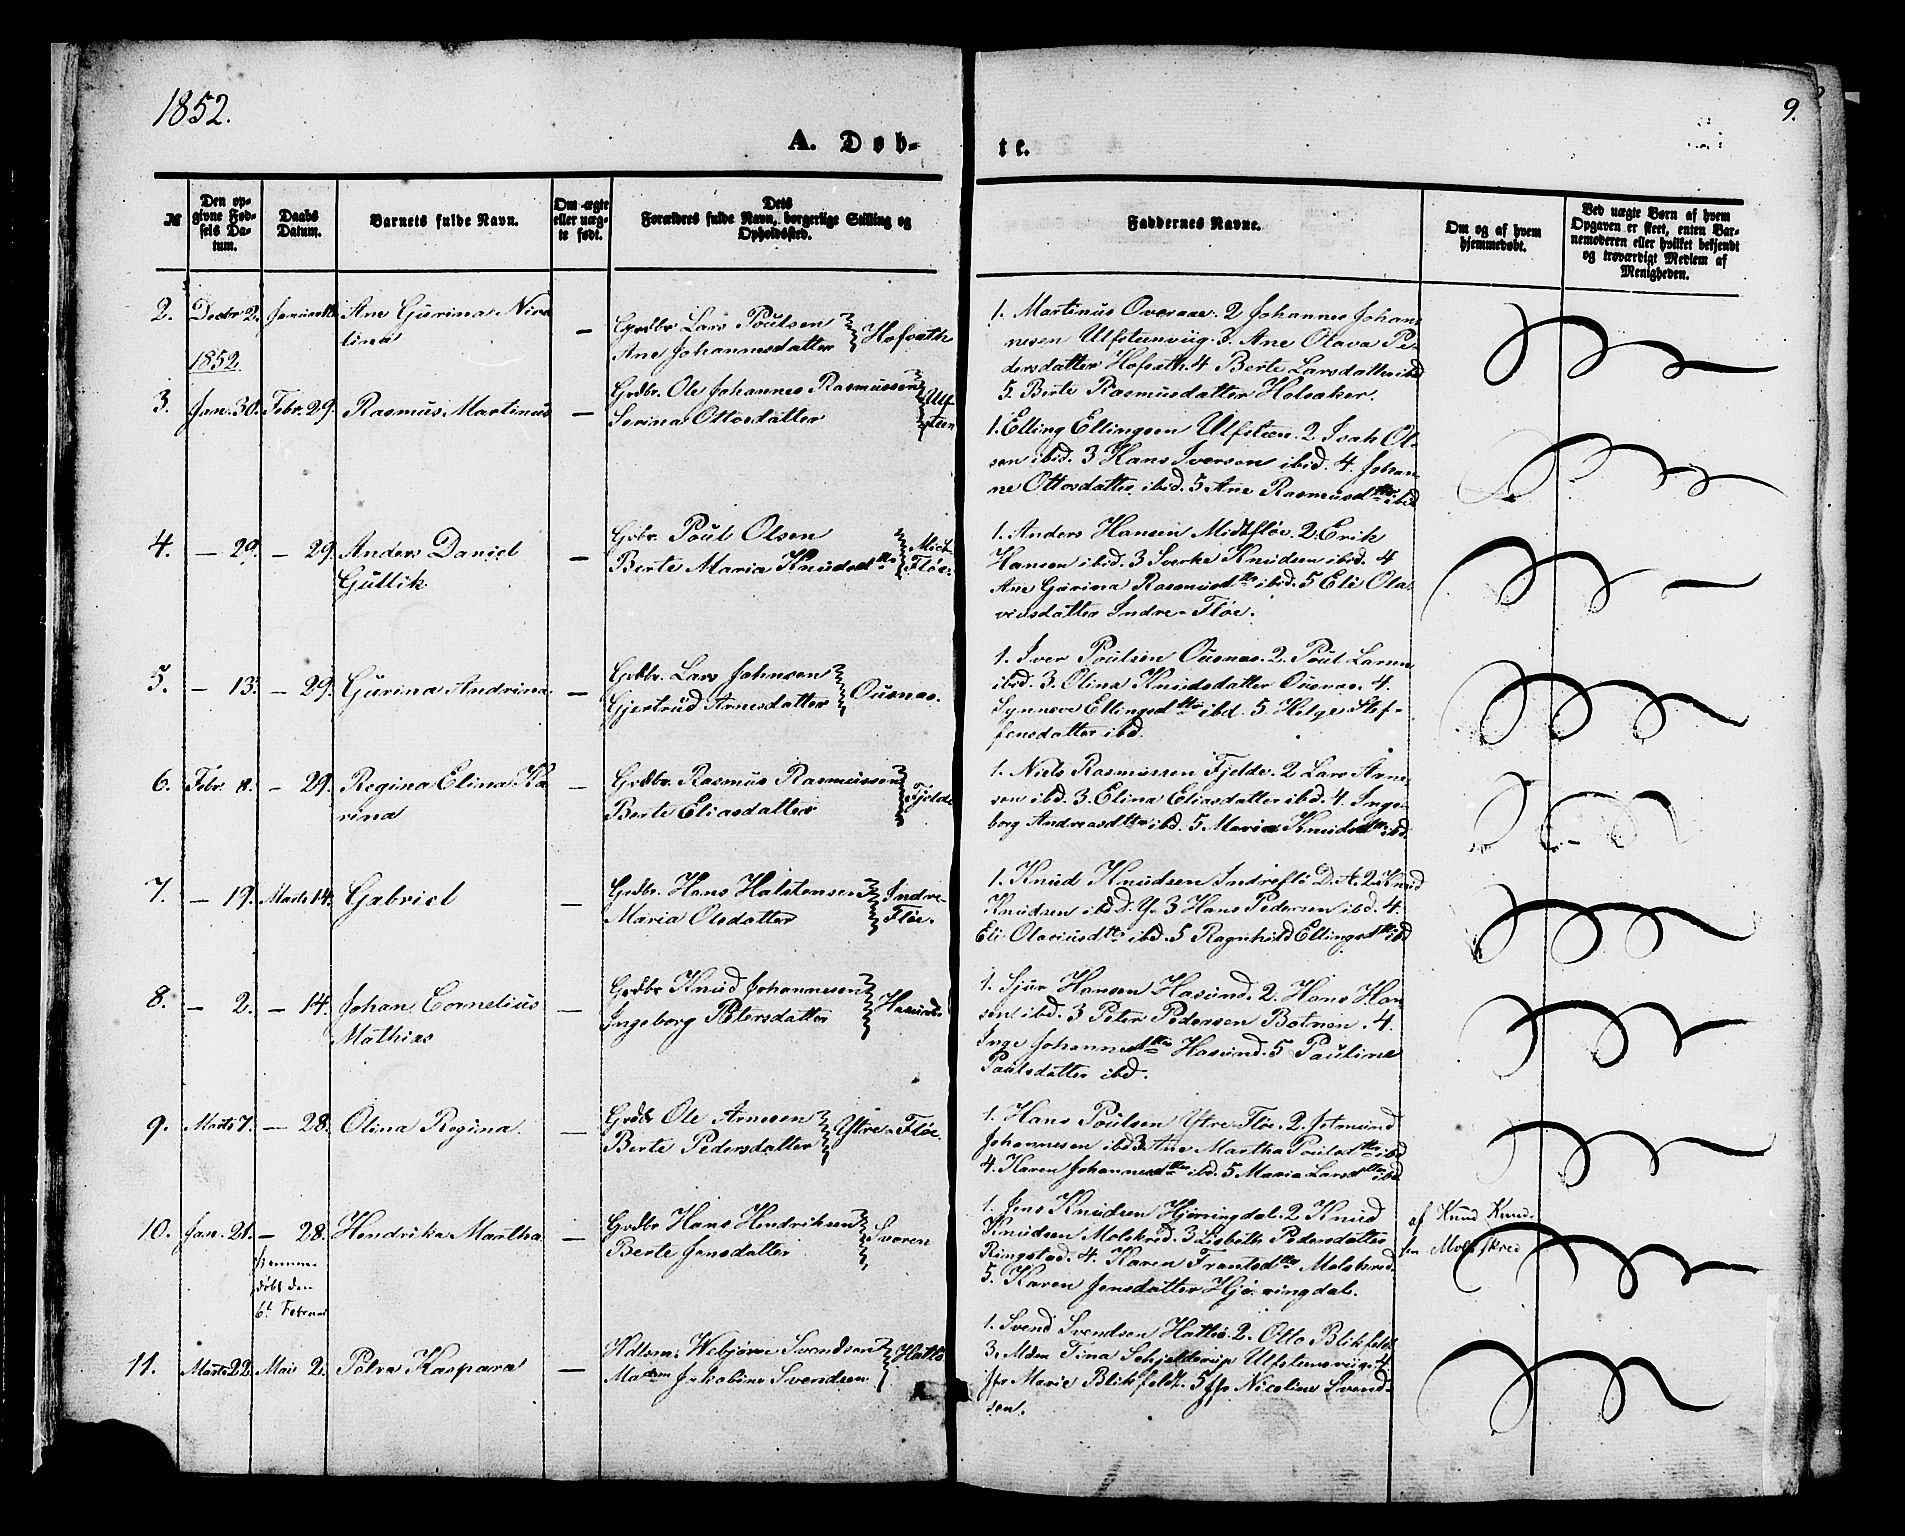 1852.
9.
A. Døb-
te.
№
Den op-
givne Fød-
sels Da-
tum.
Daabs
Datum.
Barnets fulde Navn.
Om ægte
eller uæg-
te født.
Dets
Forældres fulde Navn, borgerlige Stilling og
Opholdssted.
Faddernes Navne.
Om og af hvem
hjemmedøbt.
Ved uægte Børn af hvem
Opgaven er skeet, enten Bar-
nemoderen eller hvilket bekjendt
og troværdigt Medlem af
Menigheden.
2. Decbr 2. Ane Gurina
lina
— Grdbr Lars Poulsen
Ane Johannesdatter Hofsæth
1. Martinus Overaae. 2 Johannes Johan-
nesen Ulfsteenviig. 3. Ane Olava Pe-
dersdatter Hofsæth. 4 Berte Larsdatter ibd
5. Berte Rasmusdatter Holsaker.
1852.
3. Jan. 30. Febr. 29. Rasmus Martinus
— Grdbr. Ole Johannes Rasmussen
Serina Ottosdatter Ulf-
steen
1. Elling Ellingsen Ulfsteen. 2 Isak Ol-
sen ibid. 3 Hans Iversen ibid. 4. Johan-
ne Ottosdatter ibid. 5 Ane Rasmusdtter ibid
4. — 29. — 29. Anders Daniel
Gullik
— Grbr. Poul Olsen
Berte Maria Knudsdtter Midt-
Fløe.
1. Anders Hansen Midtfløe. 2. Erik
Hansen ibid. 3 Sverke Knudsen ibid. 4
Ane Gurina Rasmusdtter ibid. 5 Eli Ola-
viusdatter Indre-Fløe.
5. — 13. — 29. Gurina Andrina.
— Grdbr. Lars Johnsen
Gjertrud Arnesdatter Ousnas.
1. Iver Poulsen Ousnas. 2. Poul Larsen
ibid. 3. Olina Knudsdatter Ousnas. 4.
Synneve Ellingsdtter ibd. 5 Helge Stef-
fensdatter ibd.
6. Febr. — 29. Regina Elina Ka
rina
— Grdbr. Rasmus Rasmussen
Berte Eliasdatter Fjelde
1. Niels Rasmussen Fjelde. 2 Lars Arne-
sen ibd. 3. Elina Eliasdatter ibd. 4. Inge-
borg Andreasdtter ibd. 5 Maria Knudsdtter ibd.
7. — 19. Marts 14. Gabriel
— Grdbr. Hans Halstensen
Maria Olsdatter Indre-
Fløe.
1. Knud Knudsen Indreflø D. Æ. 2 Knud
Knudsen ibd D. Y. 3 Hans Pedersen ibd. 4.
Eli Olaviusdtter ibd. 5 Ragnhild Ellingsdtter ibd
8. — 2. — 14. Johan Cornelius
Mathias
— Grdbr Knud Johannesen
Ingeborg Petersdatter Hasund.
1. Sjur Hansen Hasund. 2. Hans Han-
sen ibd. 3 Peter Pedersen Botnen. 4.
Inge Johannesdtter Hasund. 5 Pauline
Paulsdatter ibd.
9. Marts 7. — 28. Olina Regina.
— Grdbr Ole Arnesen
Berte Pedersdatter Ytre-Fløe.
1. Hans Poulsen Ytre-Fløe. 2. Jetmund
Johannesen ibd 3. Ane Martha Poulsdtter ibd
4. Karen Johannesdtter ibd. 5 Maria Larsdtter ibd
10. Jan. 21. — 28. Hendrika Martha
hjemme-
døbt den
6t Februar
— Grdbr Hans Hendriksen
Berte Jensdatter Svoren
1. Jens Knudsen Hjørringdal. 2 Knud
Knudsen Molskred. 3 Lisbeth Pedersdatter
Ringstad. 4. Karen Frantsdtter Molskred.
5. Karen Jensdatter Hjørringdal.
af Knud Knud-
sen Molskred
11. Marts 22. Mai 2. Petra Kaspara
— Hdlsm. Webjørn Svendsen
Madm Jakobine Svendsen Hatlø
1. Svend Svendsen Hatlø. 2. Otto Blikfeldt
3. Mdm Tina Schjelderup Ulfsteenviig. 4.
Jfr Marie Blikfeldt. 5 Jfr Nicoline Svend-
sen.